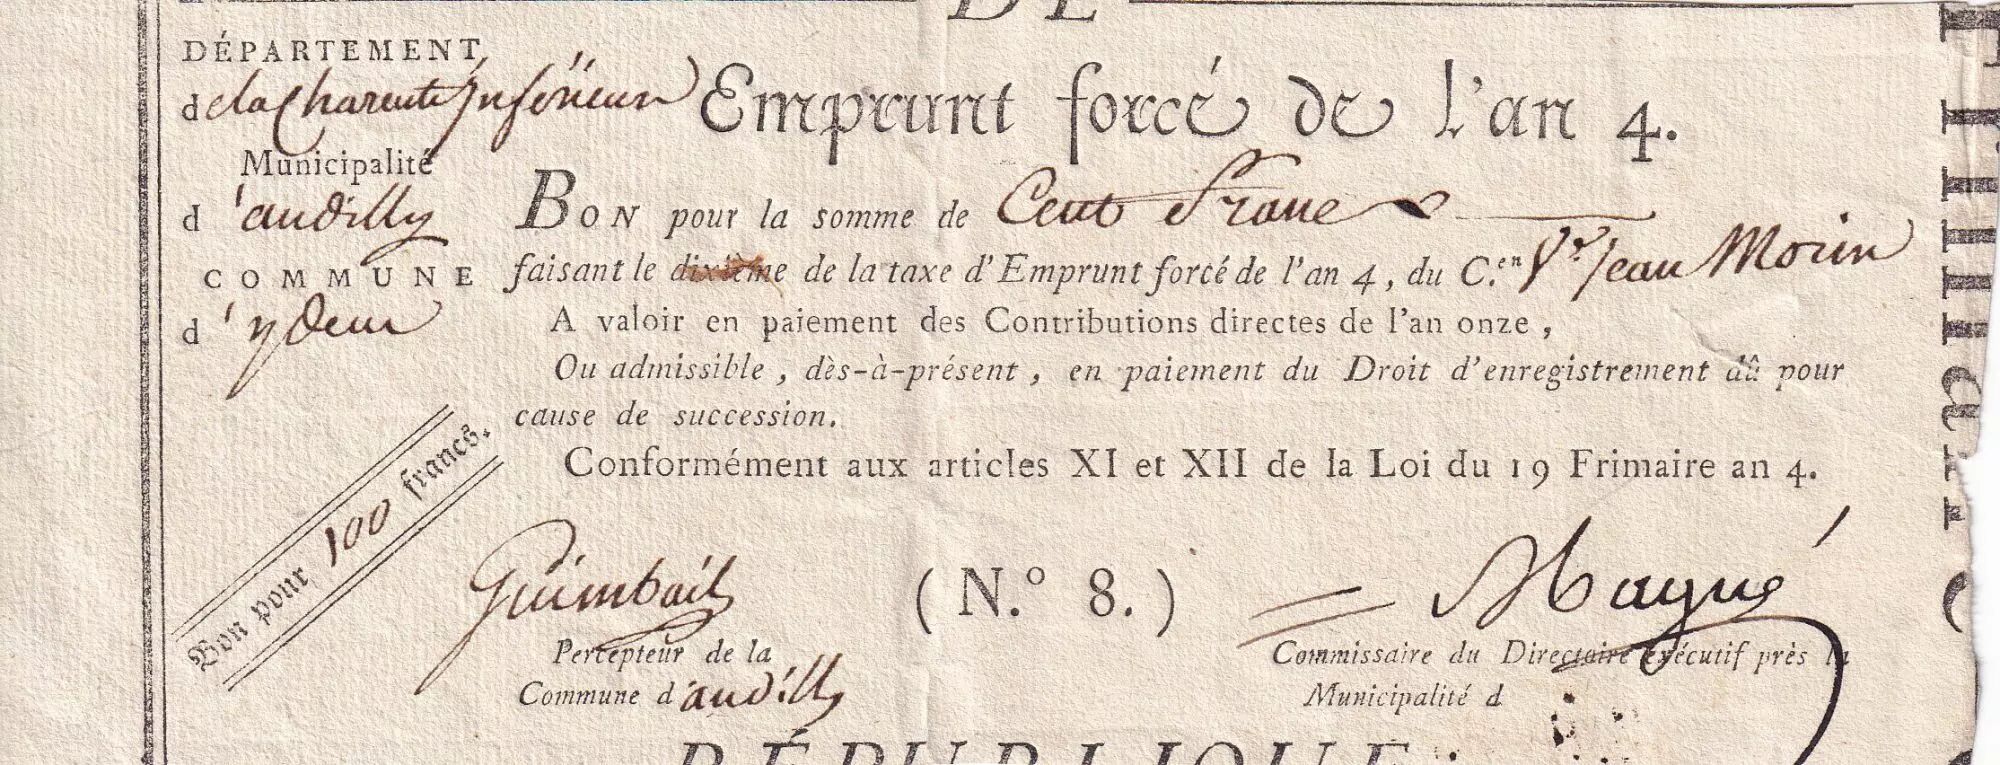 DE
DÉPARTEMENT
de la Charente Inférieure
Emprunt forcé de l'an 4.
Municipalité
d'audilly
BON pour la somme de Cent Franc
COMMUNE
faisant le dixième de la taxe d'Emprunt forcé de l'an 4, du C.en Jean Morin
d'ydeur
A valoir en paiement des Contributions directes de l'an onze,
Ou admissible, dès-à-présent, en paiement du Droit d'enregistrement dû pour
cause de succession.
Conformément aux articles XI et XII de la Loi du 19 Frimaire an 4.
Bon pour 100 francs.
Guimbail
(N.° 8.)
Magné
Percepteur de la
Commune d'audilly
Commissaire du Directoire exécutif près la
Municipalité d
RÉPUBLIQUE